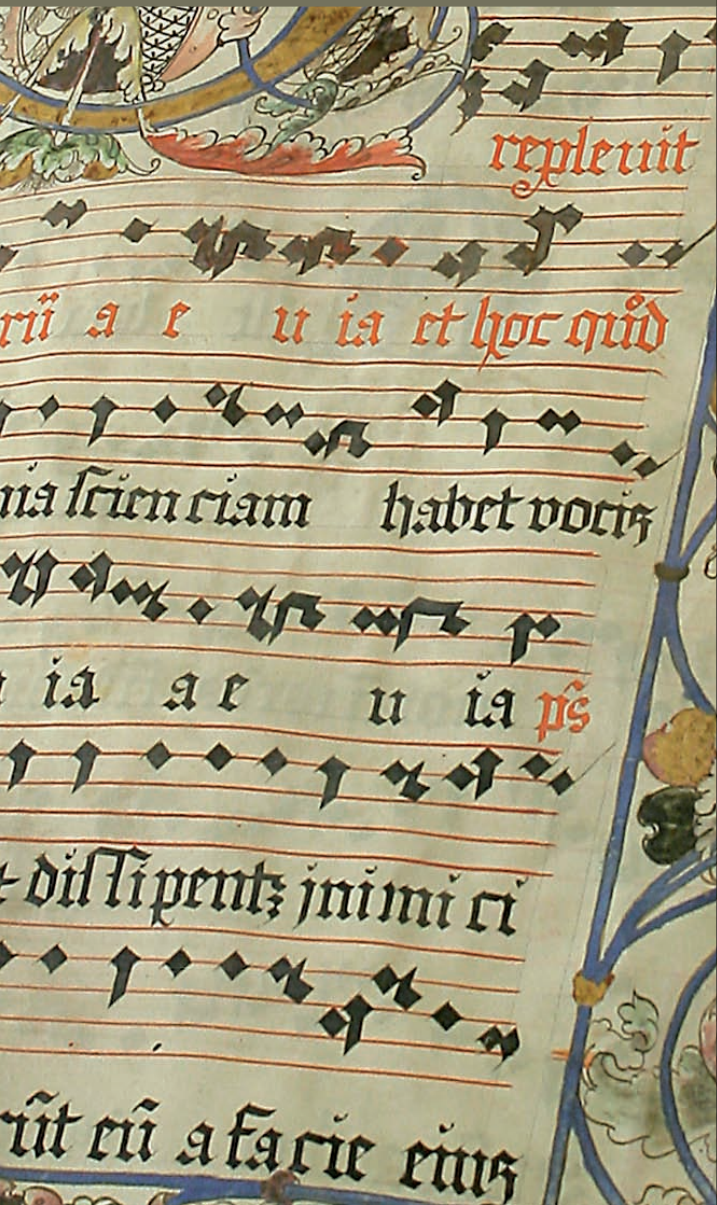 repleuit
rū a e u ia et hoc quod
nia scienciam habet vocis
ia a e u ia ps
dissipentur jnimici
rūt eū a facie eius